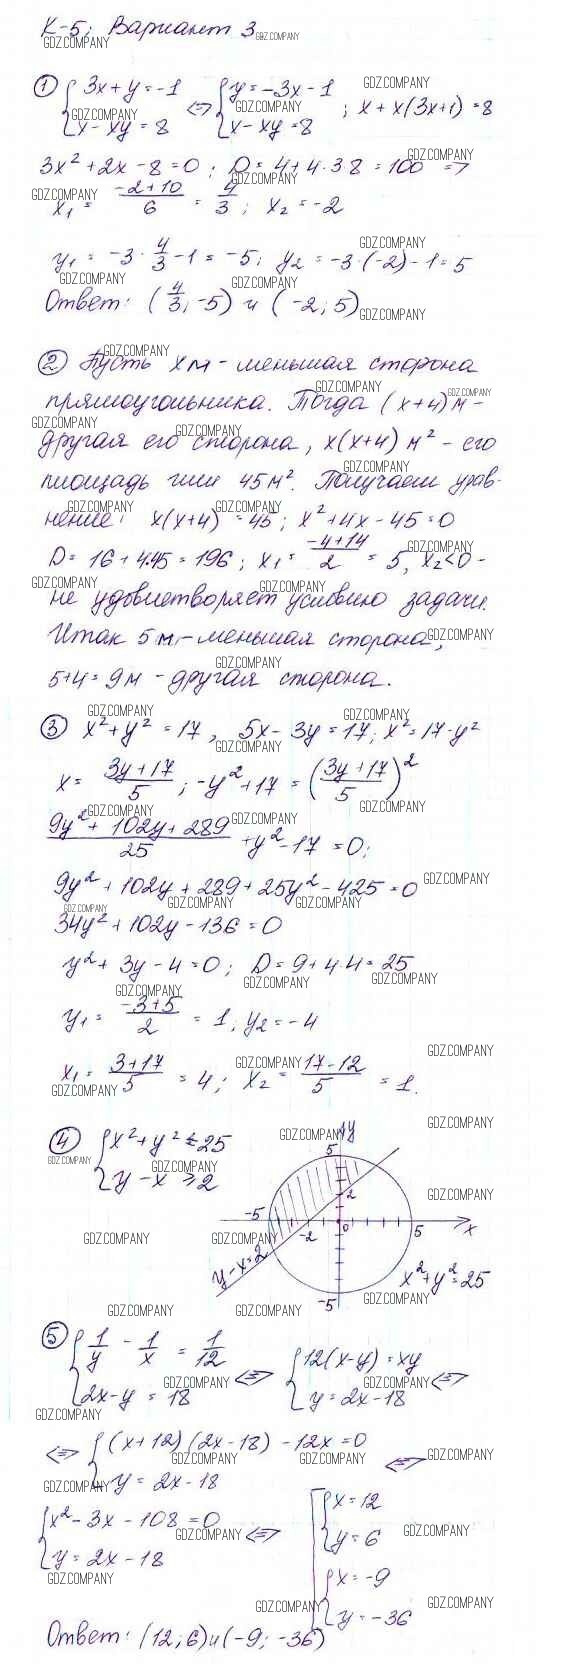 К-5; Вариант 3
① { 3x+y=-1 ⇔ { y=-3x-1 ; x+x(3x+1)=8
{ x-xy=8 { x-xy=8
3x²+2x-8=0; D=4+4·3·8=100 ⇒
x₁ = (-2+10)/6 = 4/3; x₂=-2
y₁ = -3·4/3-1=-5; y₂=-3·(-2)-1=5
Ответ: (4/3;-5) и (-2;5)
② Пусть x м - меньшая сторона
прямоугольника. Тогда (x+4) м -
другая его сторона, x(x+4) м² - его
площадь или 45 м². Получаем урав-
нение: x(x+4)=45; x²+4x-45=0
D=16+4·45=196; x₁=(-4+14)/2=5, x₂<0 -
не удовлетворяет условию задачи.
Итак 5м - меньшая сторона,
5+4=9м - другая сторона.
③ x²+y²=17, 5x-3y=17; x²=17-y²
x=(3y+17)/5; -y²+17=((3y+17)/5)²
(9y²+102y+289)/25+y²-17=0;
9y²+102y+289+25y²-425=0
34y²+102y-136=0
y²+3y-4=0; D=9+4·4=25
y₁=(-3+5)/2=1; y₂=-4
x₁=(3+17)/5=4; x₂=(17-12)/5=1.
④ { x²+y²≤25
{ y-x≥2
y
5
2
-5
-2
0
5
x
y-x=2
x²+y²=25
-5
⑤ { 1/y-1/x=1/12 ⇔ { 12(x-y)=xy ⇔
{ 2x-y=18 { y=2x-18
⇔ { (x+12)(2x-18)-12x=0 ⇔
{ y=2x-18
{ x²-3x-108=0 ⇔ [ { x=12
{ y=2x-18 { y=6
{ x=-9
{ y=-36
Ответ: (12;6) и (-9;-36)
GDZ.COMPANY